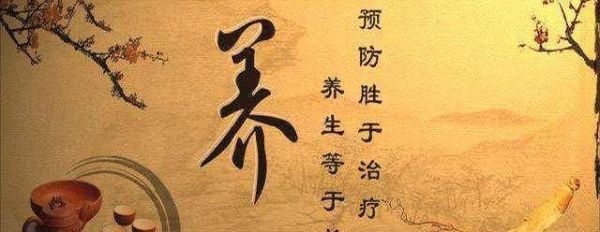 养
预防胜于治疗
养生等于